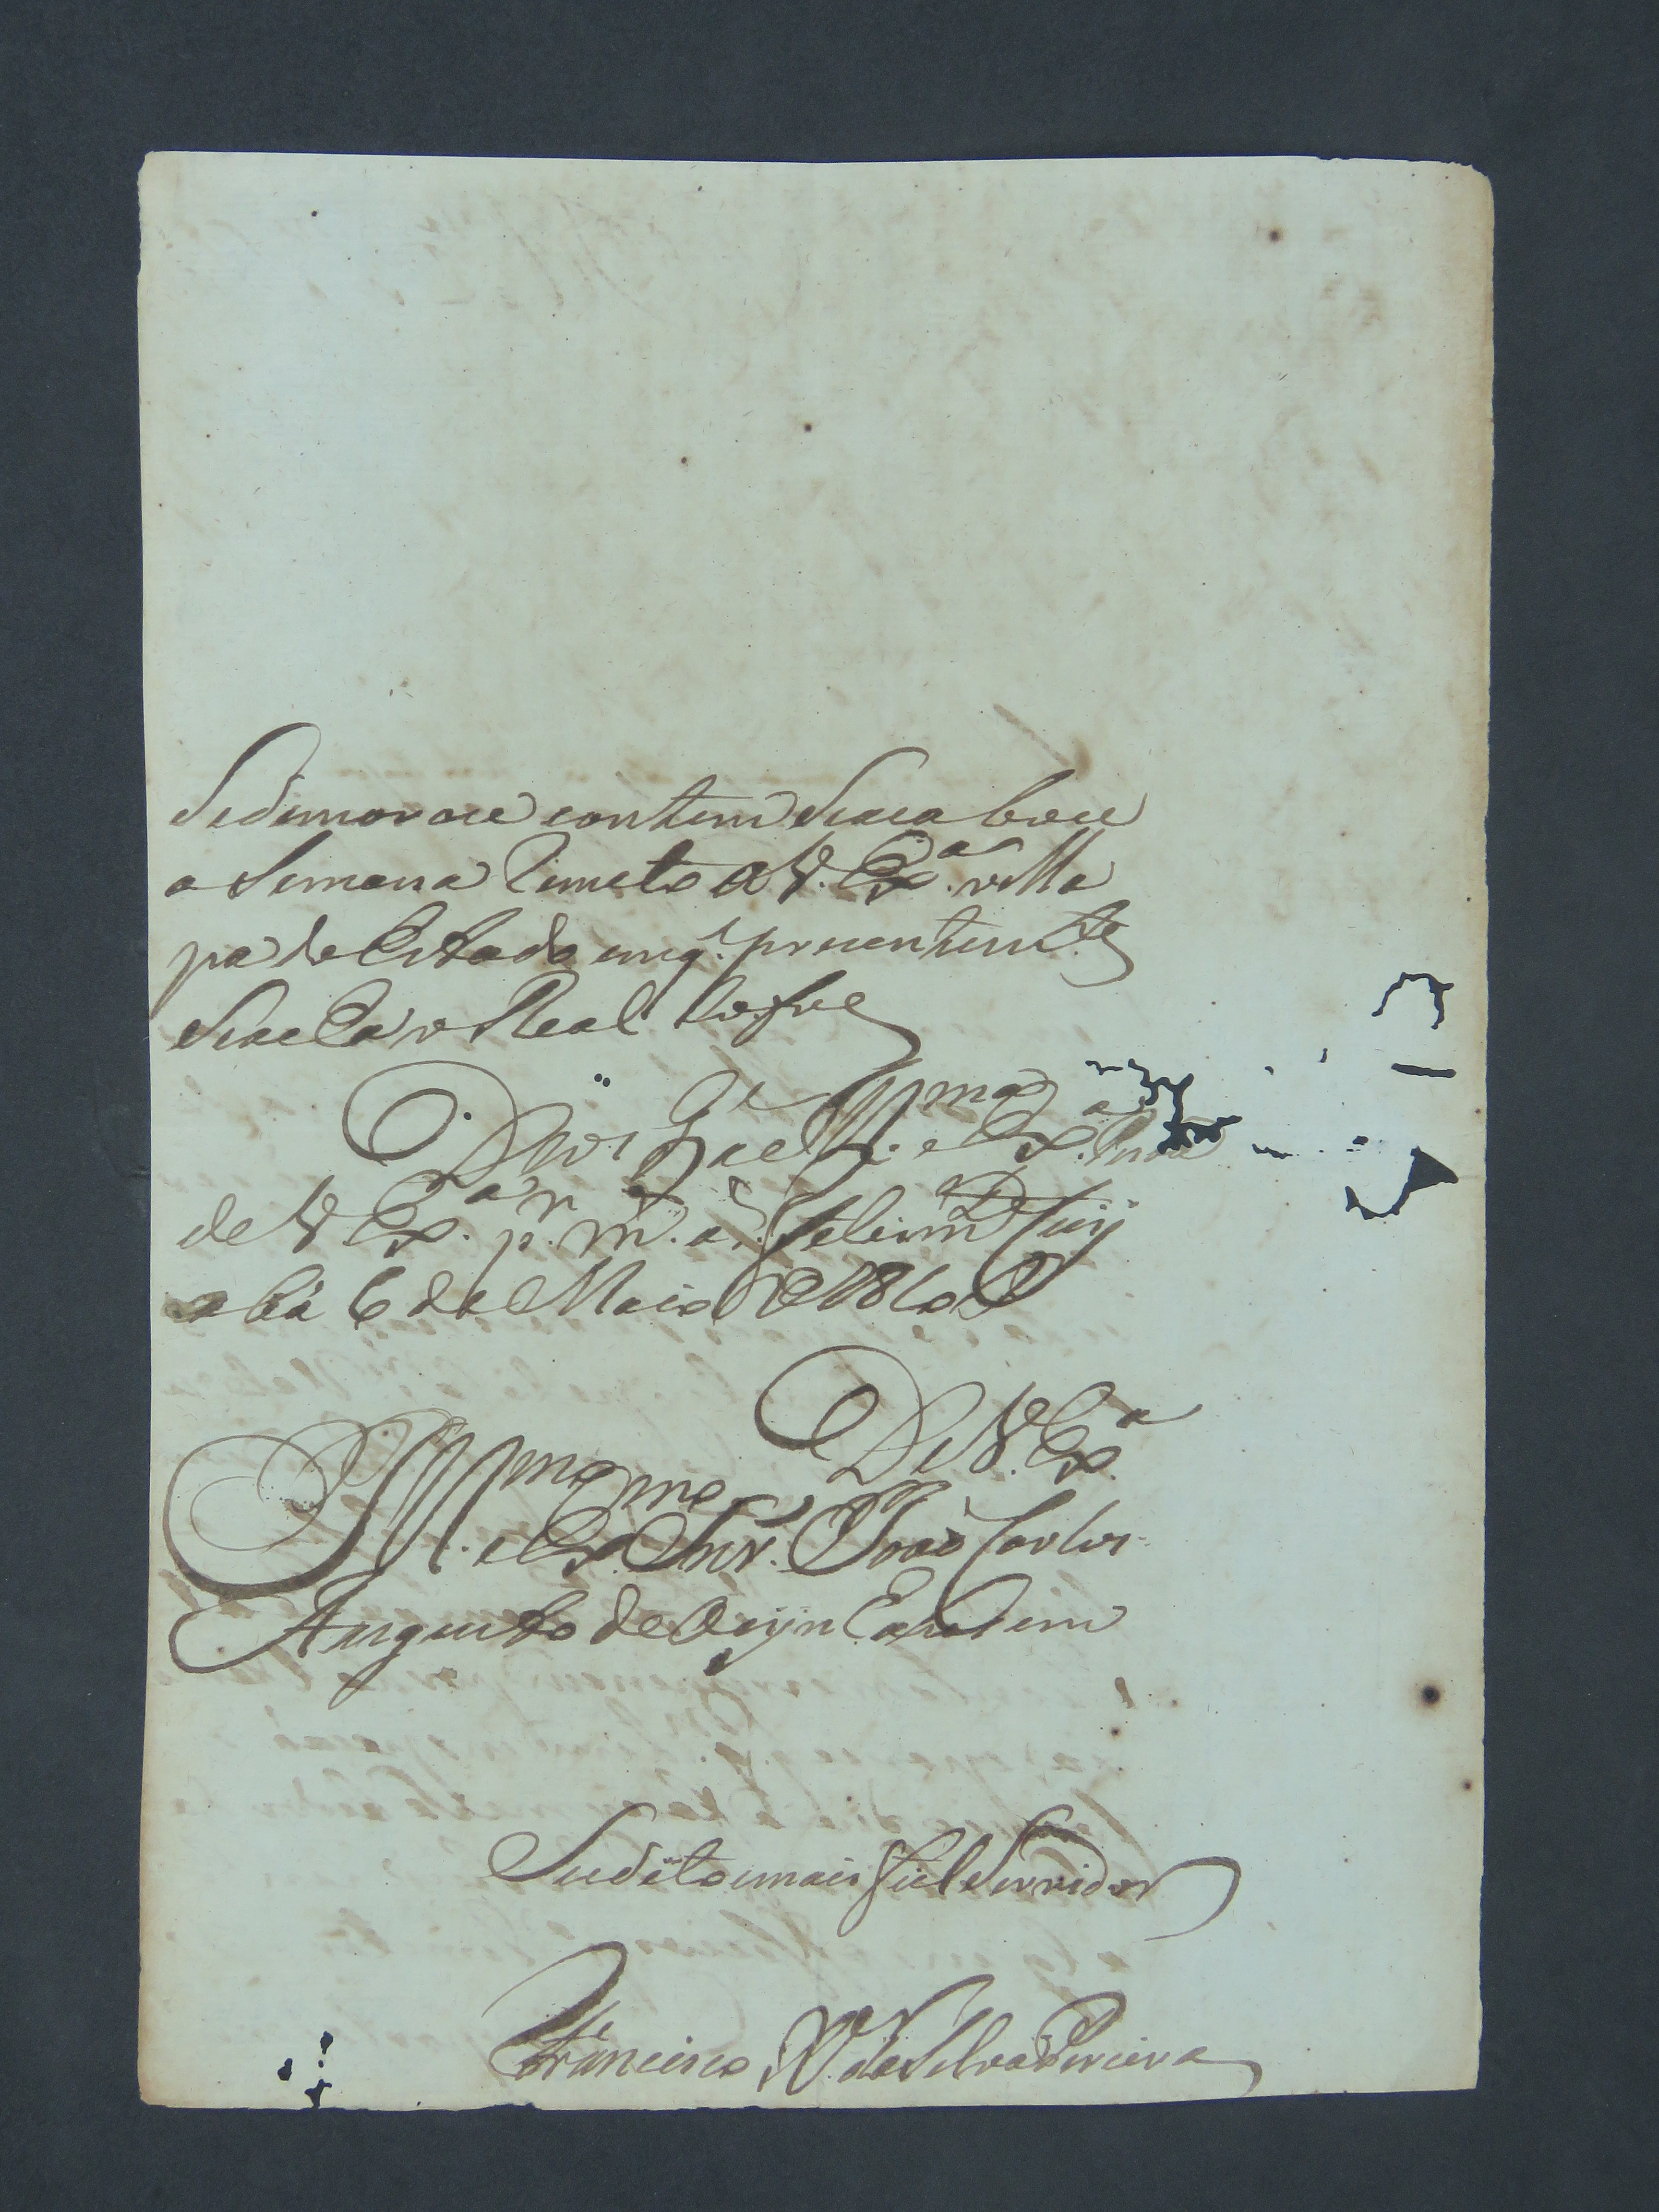 Sedemorar e contem Seacabace
a Semana Remeto a V. Exª. o Ma
pa do Estado em q. prezentem.te
Seacha o Real Cofre
Deos G.e a Ill.ma e Ex.ma Pessoa
de V. Exª. p.r m. a. felices Cuy
abá 6 de Maio de 18
De V. Exª
Ill.mo e Ex.mo Snr. João Carlos
Augusto de Oeynhausem
Sudito e mais fiel Servidor
Francisco X.er da Silva Pereira